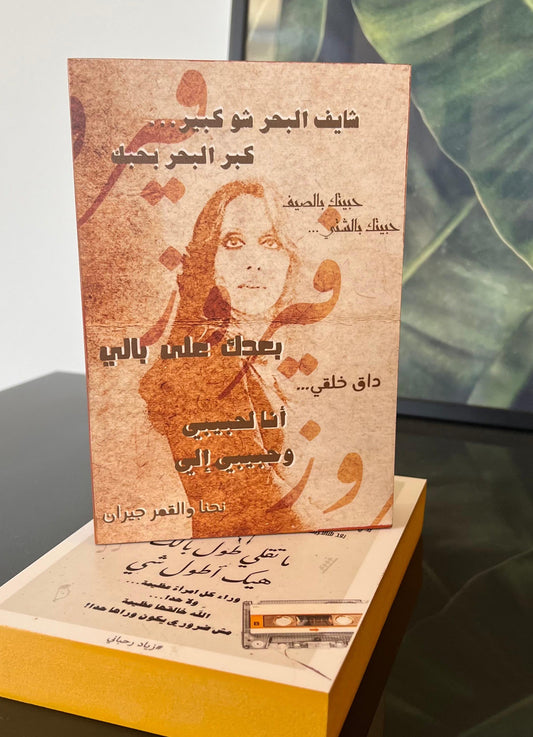 شايف البحر شو كبير...
كبر البحر بحبك
حبيتك بالصيف
حبيتك بالشتي...
فيروز
فيروز
بعدك على بالي
داق خلقي...
أنا لحبيبي
وحبيبي إلي
نحنا والقمر جيران
ما تقلي طول بالك
هيك أطول شي
وراء كل امرأة عظيمة...
ولا حدا...
الله خالقها عظيمة
مش ضروري يكون وراها حدا!!
#زياد رحباني